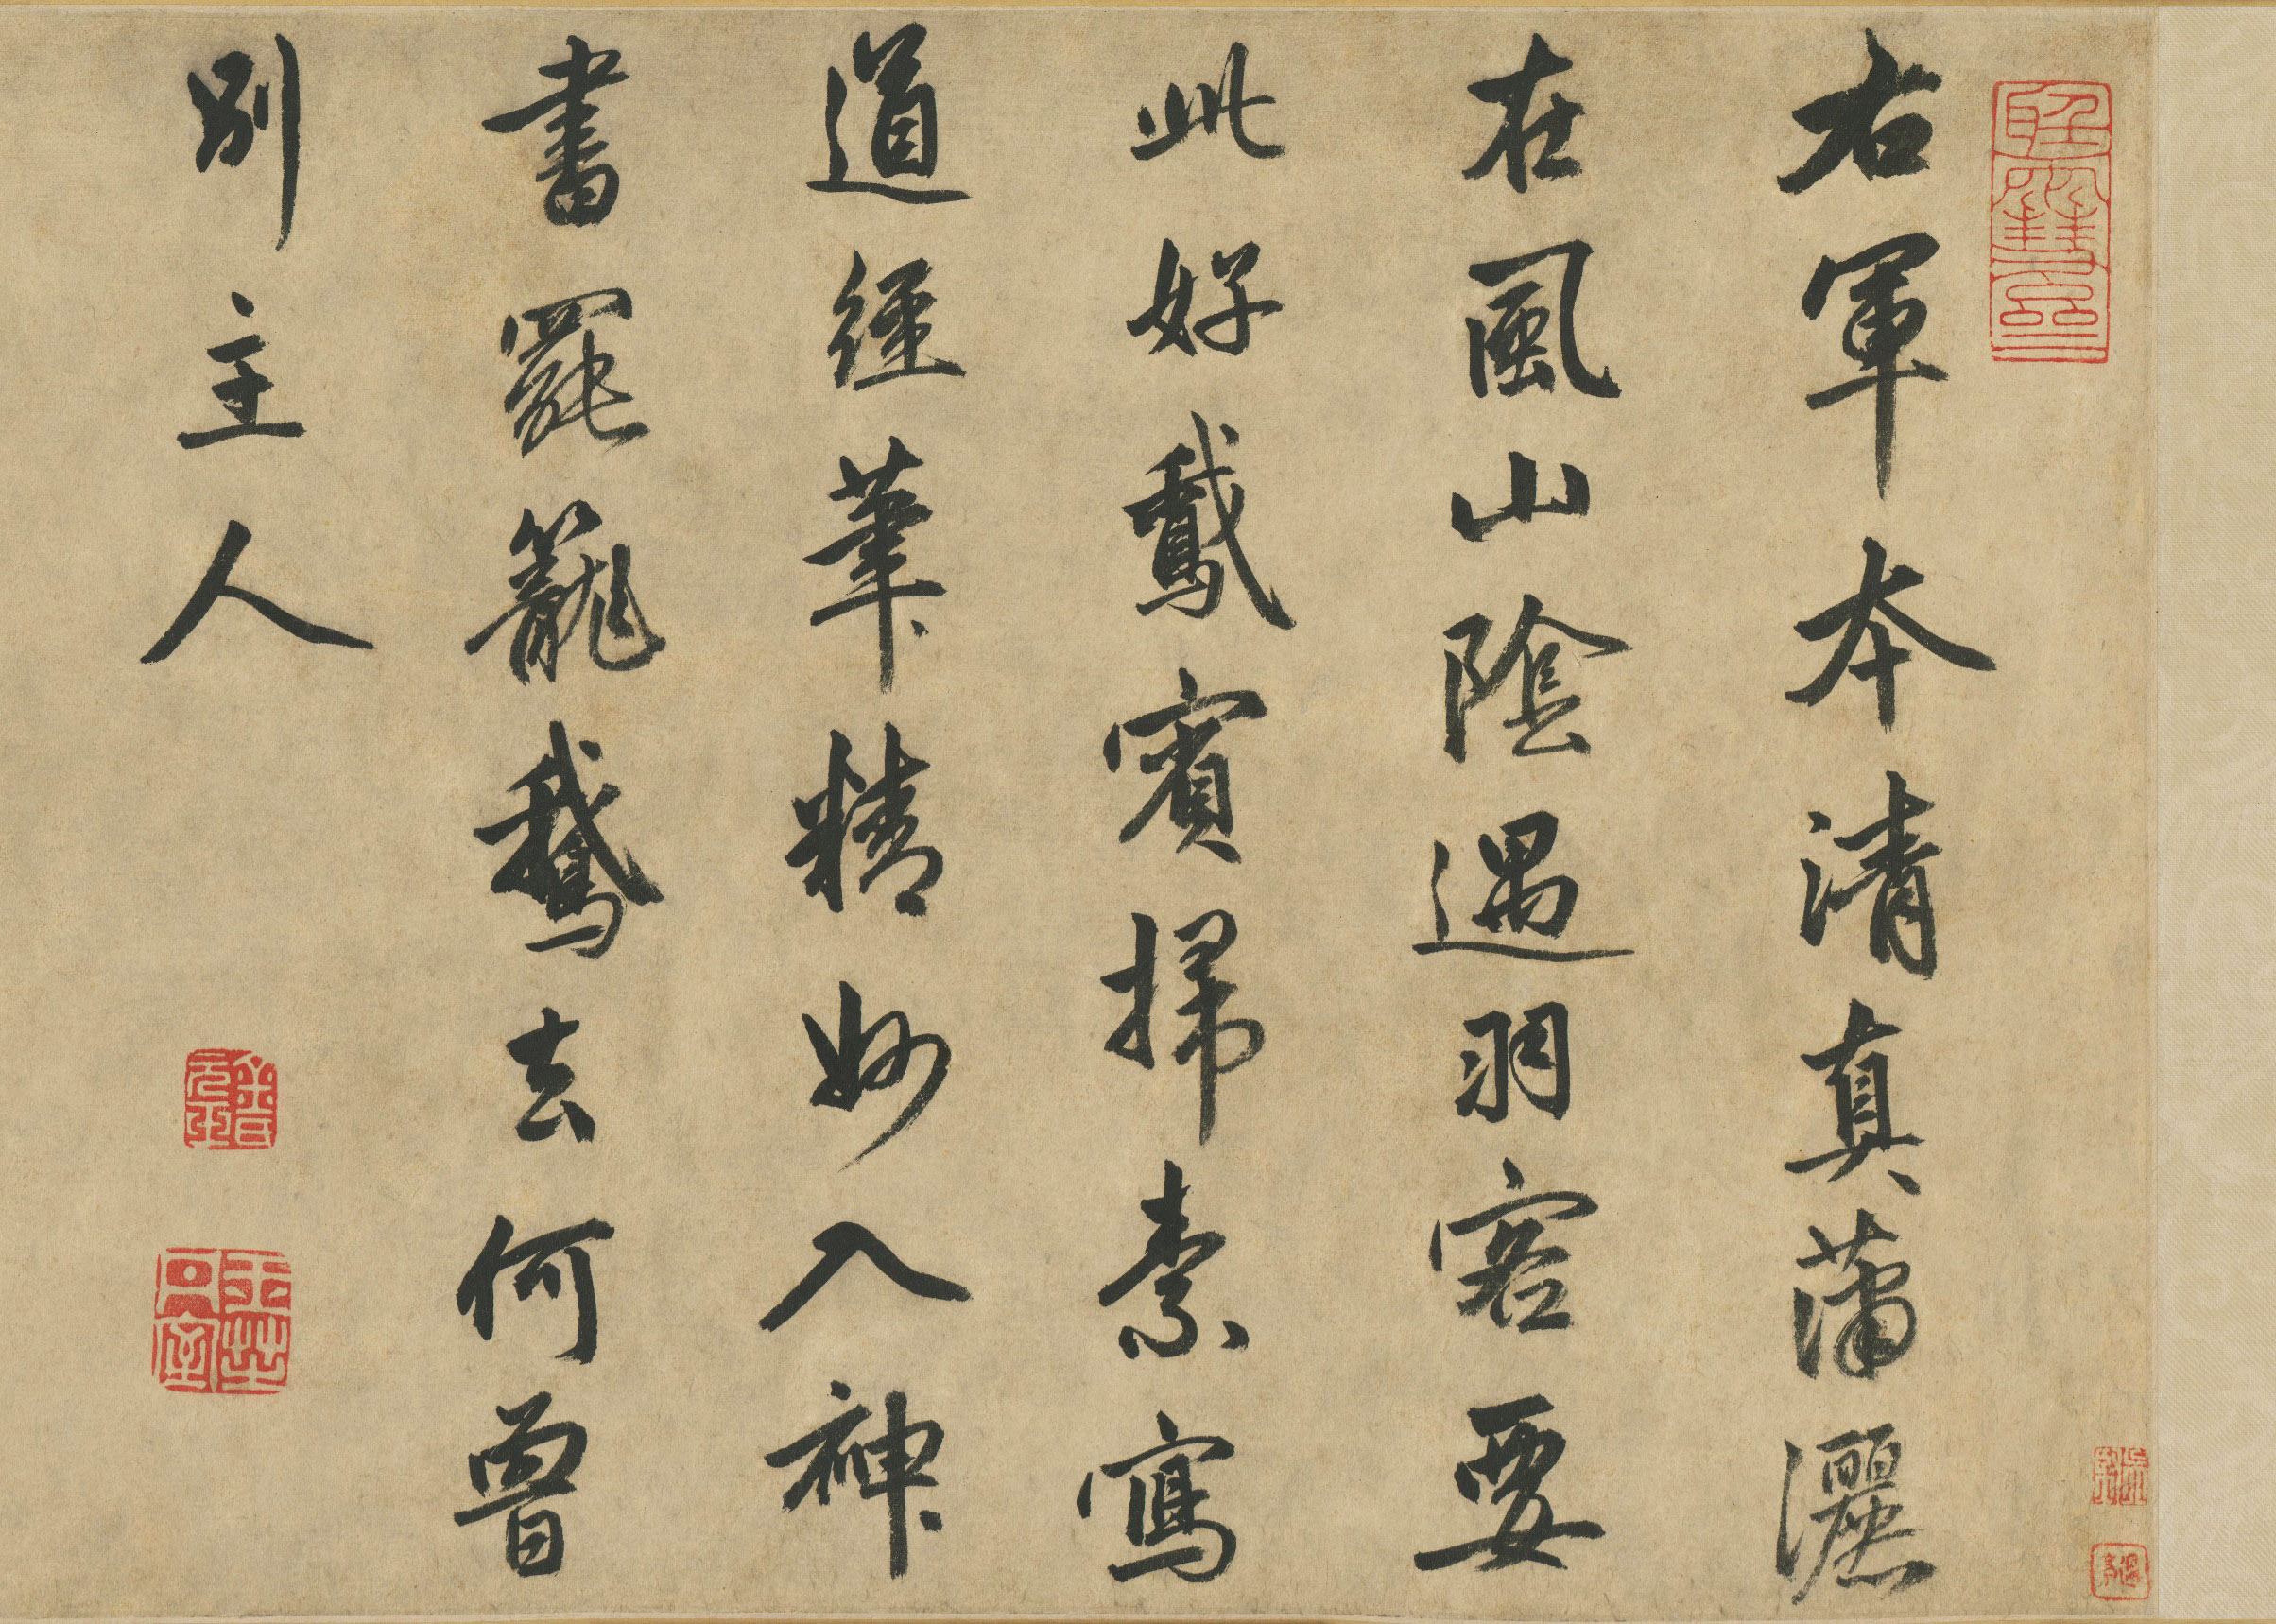 右軍本清真蕭灑
在風山陰遇羽客要
此好鵞賓掃素寫
道經筆精妙入神
書罷籠鵝去何曾
別主人